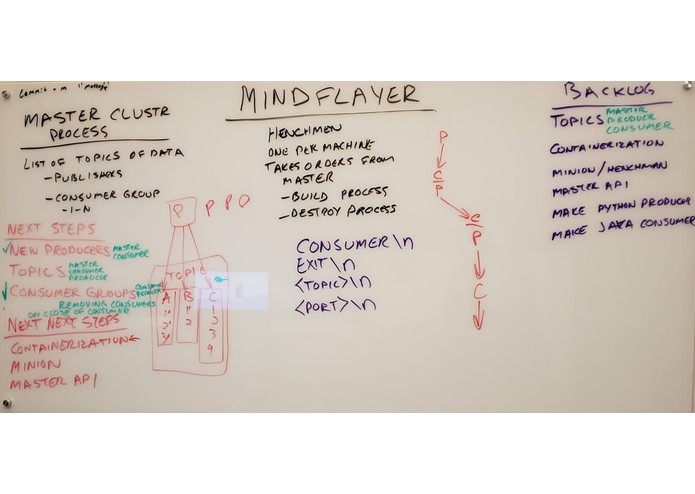 commit -m "
MASTER CLUSTR
PROCESS
LIST OF TOPICS OF DATA
-PUBLISHERS
-CONSUMER GROUP
-1-N
NEXT STEPS
✓NEW PRODUCERS MASTER CONSUMER
TOPICS MASTER CONSUMER PRODUCER
✓CONSUMER GROUPS CONSUMER PRODUCER
REMOVING CONSUMERS
ON CLOSE OF CONSUMER
NEXT NEXT STEPS
CONTAINERIZATION←
MINION
MASTER API
P P P
TOPIC
A B C
1 1 1
2 2 2
3 3
4
MINDFLAYER
HENCHMEN
ONE PER MACHINE
TAKES ORDERS FROM
MASTER
-BUILD PROCESS
-DESTROY PROCESS
CONSUMER\n
EXIT\n
<TOPIC>\n
<PORT>\n
P
C/P
C/P
C
BACKLOG
TOPICS MASTER PRODUCER CONSUMER
CONTAINERIZATION
MINION/HENCHMAN
MASTER API
MAKE PYTHON PRODUCER
MAKE JAVA CONSUMER